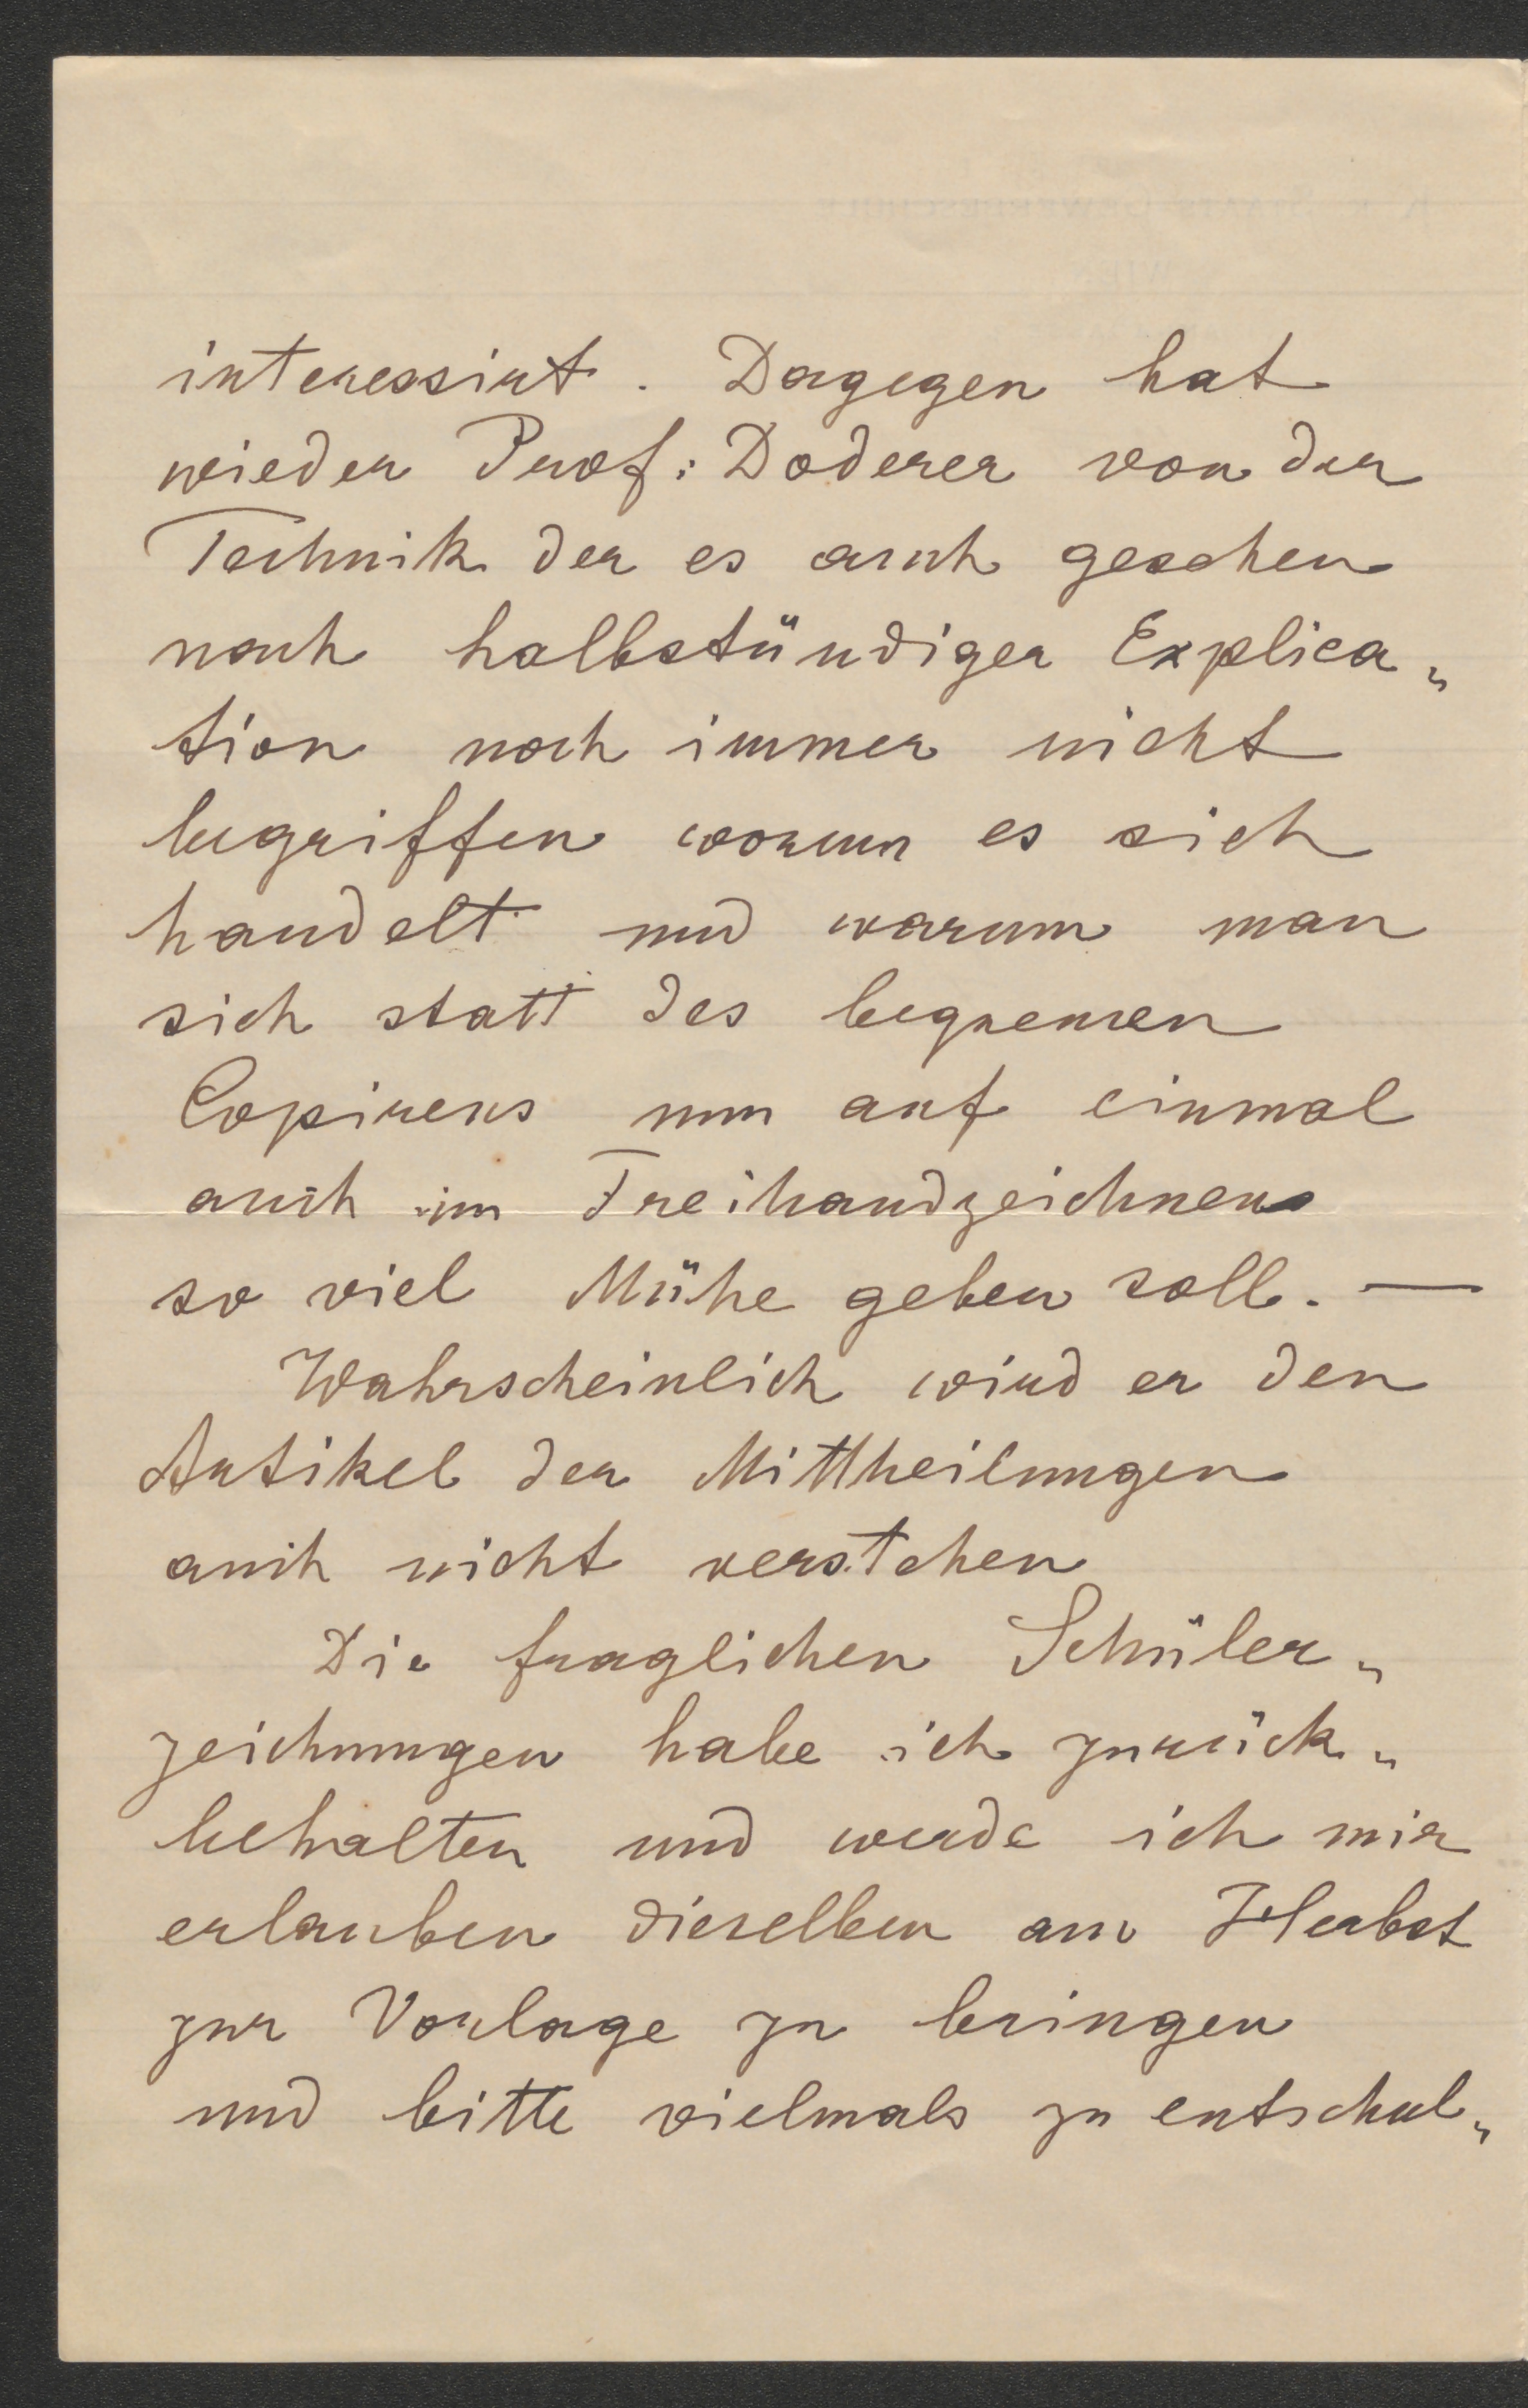 interessirt. Dagegen hat
wieder Prof: Doderer von der
Technik der es auch gesehen
nach halbstündiger Explica„
tion noch immer nicht
begriffen worum es sich
handelt und warum man
sich statt des bequemen
Copirens nun auf einmal
auch im Freihandzeichnen
so viel Mühe geben soll. —
Wahrscheinlich wird er den
Artikel der Mittheilungen
auch nicht verstehen
Die fraglichen Schüler„
zeichnungen habe ich zurück„
behalten und werde ich mir
erlauben dieselben am Herbst
zur Vorlage zu bringen
und bitte vielmals zu entschul„